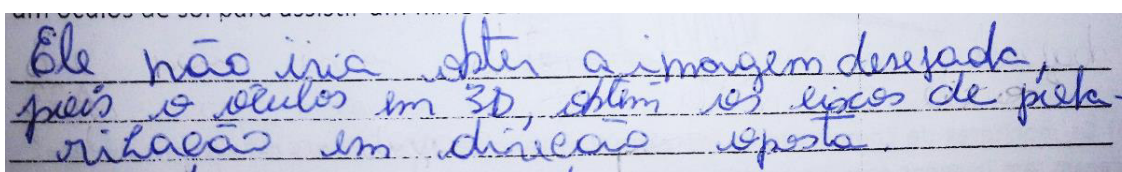 Ele não iria obter a imagem desejada,
pois o óculos em 3D, obtém os eixos de pola-
rização em direção oposta.